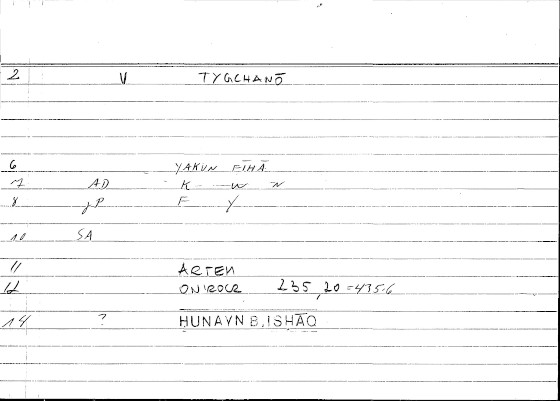 2 V TYGCHANŌ
6 YAKUN FĪHĀ
7 AD K — W N
8 jP F Y
10 SA
11 ARTEM
12 ONIROCR 235,20 = 435.6
14 ? HUNAYN B. ISḤĀQ